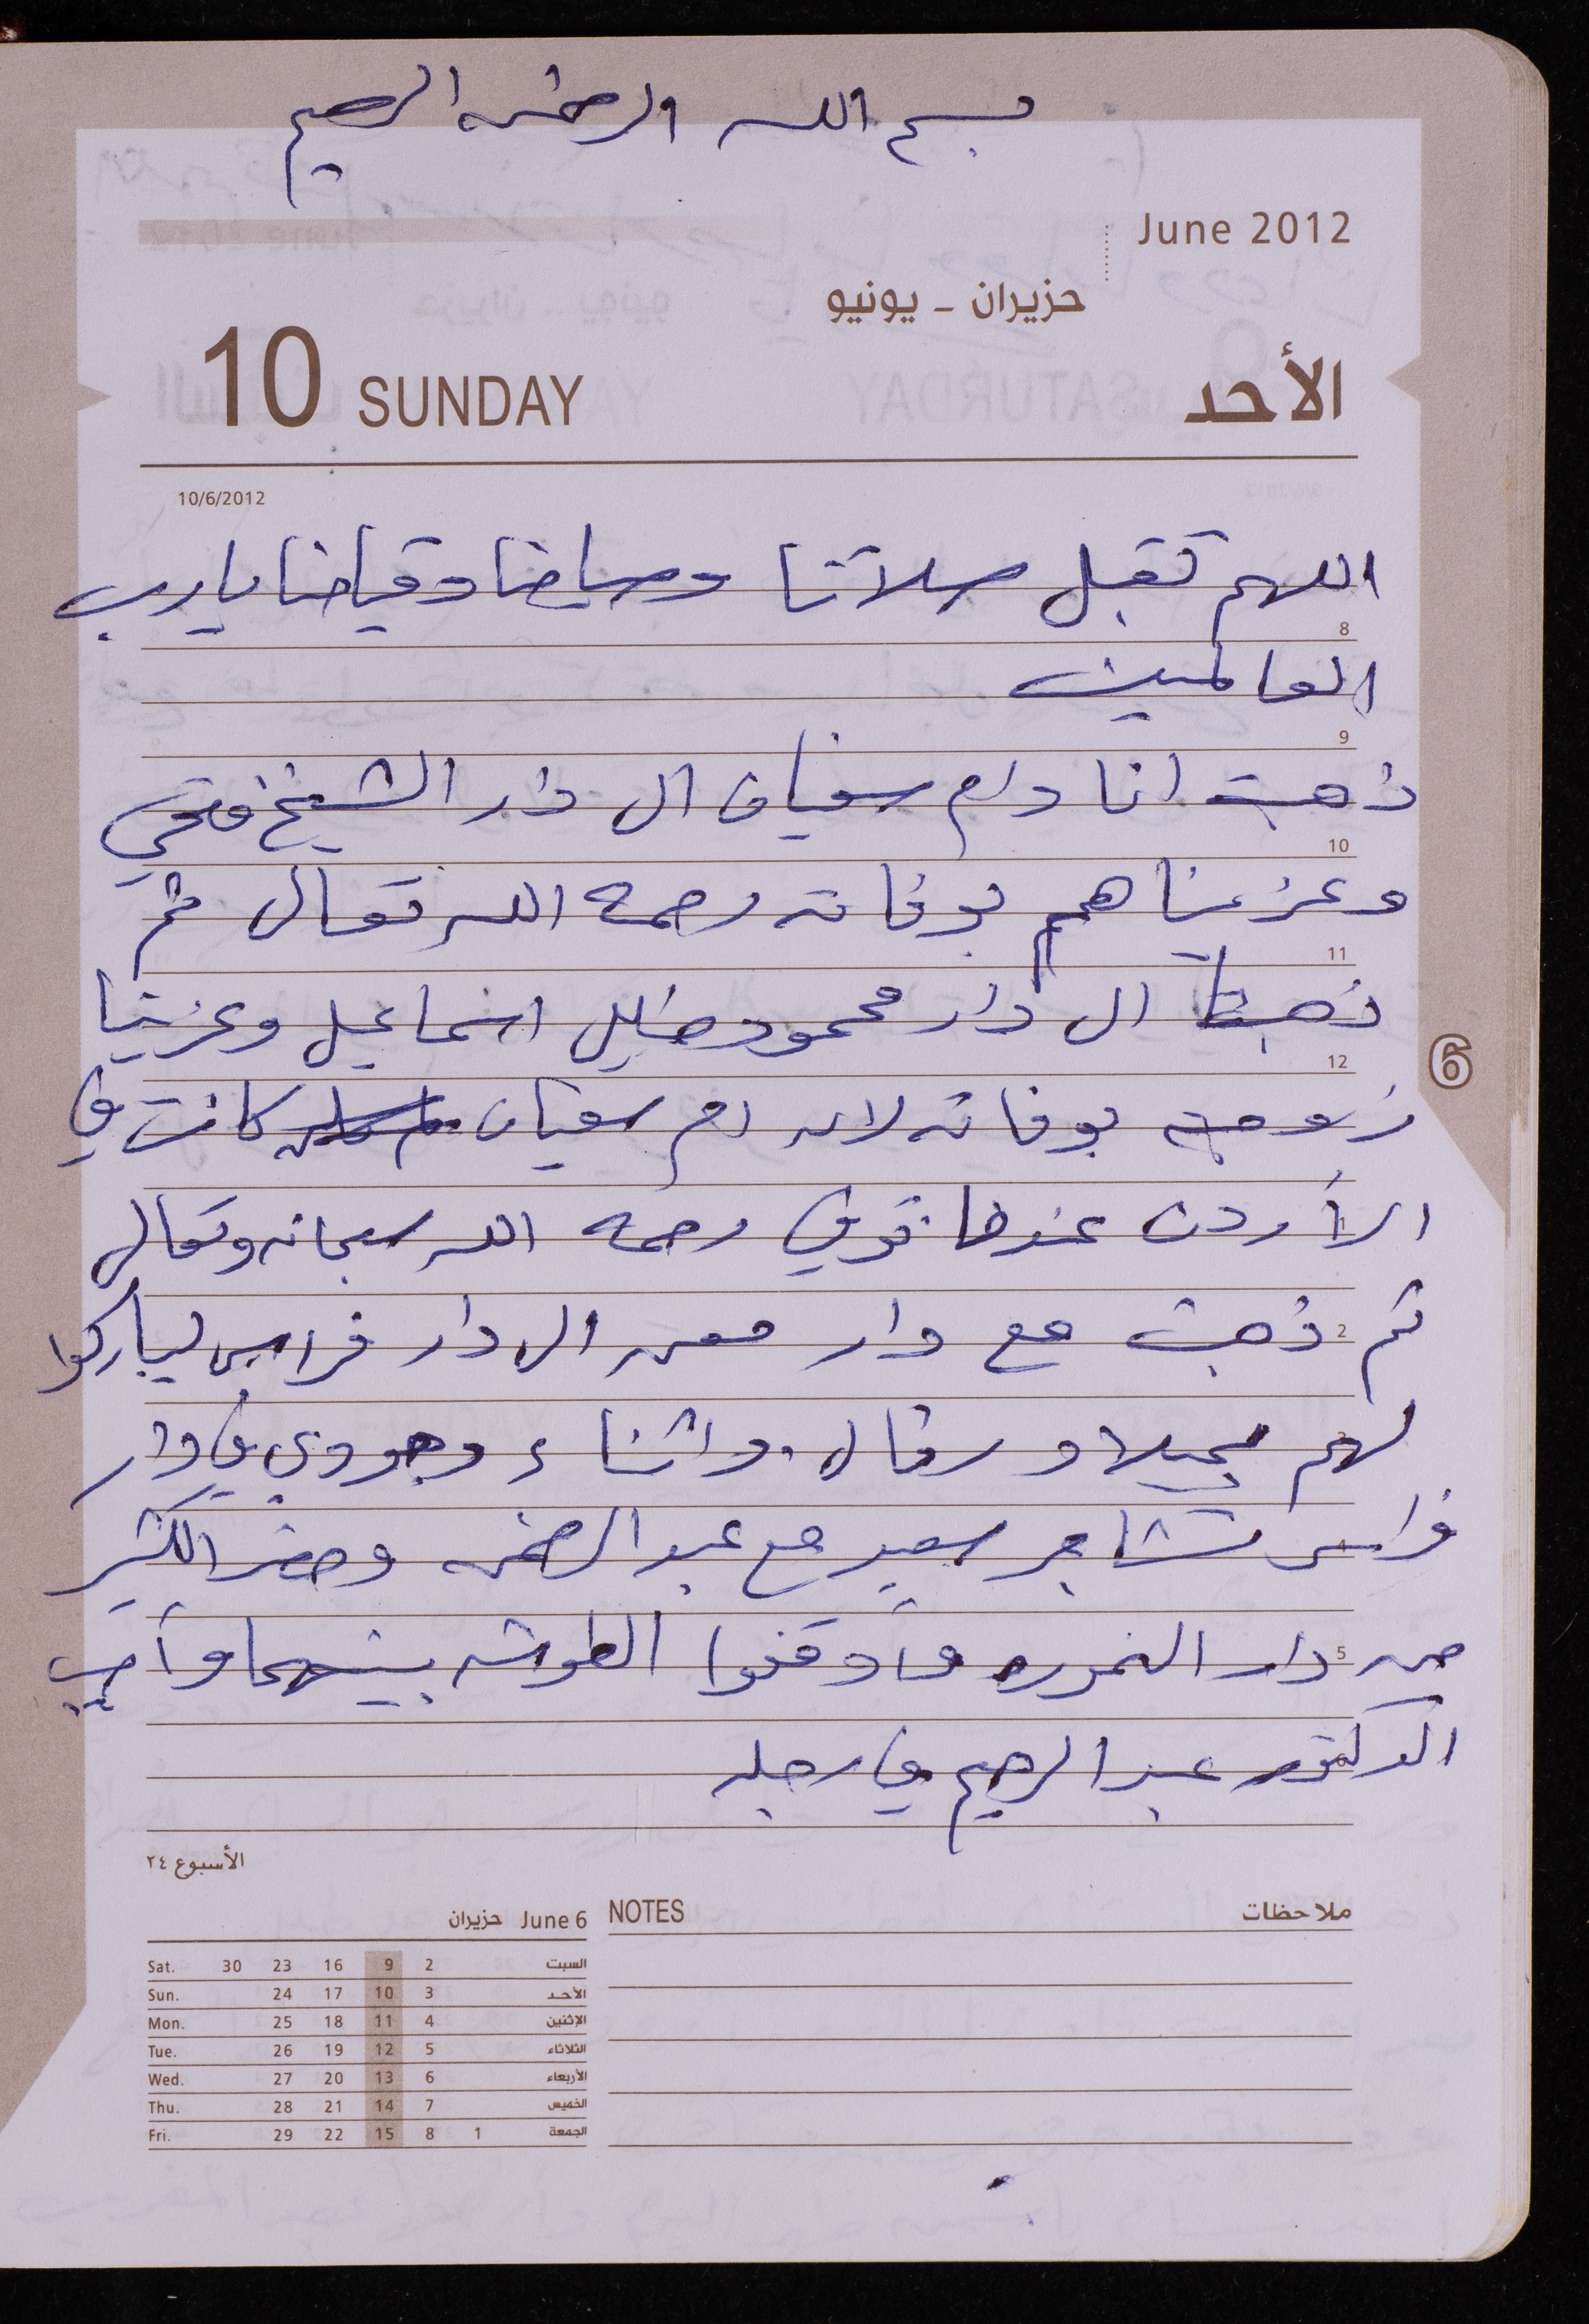 بسم الله الرحمن الرحيم
June 2012
حزيران - يونيو
10 SUNDAY الأحد
10/6/2012
اللهم تقبل صلاتنا وصيامنا وقيامنا يا رب
8
العالمين
9
ذهبت انا وام سفيان ال دار الشيخ فتحي
10
وعزيناهم بوفاته رحمه الله تعالى ثم
11
ذهبنا ال دار محمود خليل اسماعيل وعزينا
12
زوجة بوفاته لان ام سفيان كانت في
1
الأردن عندما توفي رحمه الله سبحانه وتعالى
2
ثم ذهبت مع دار معن الى دار فراس ليباركوا
لهم بميلاد رفال. واثناء وجودي في دار
فراس تشاجر سعيد مع عبد الرحمن وحضر الكثير
5
من دار النموره وأوقفوا الطوشه بينهما وأصيب
الدكتور عبد الرحيم في رجله
الأسبوع ٢٤
6
NOTES ملاحظات
June 6 حزيران
Sat. 30 23 16 9 2 السبت
Sun. 24 17 10 3 الأحد
Mon. 25 18 11 4 الإثنين
Tue. 26 19 12 5 الثلاثاء
Wed. 27 20 13 6 الأربعاء
Thu. 28 21 14 7 الخميس
Fri. 29 22 15 8 1 الجمعة